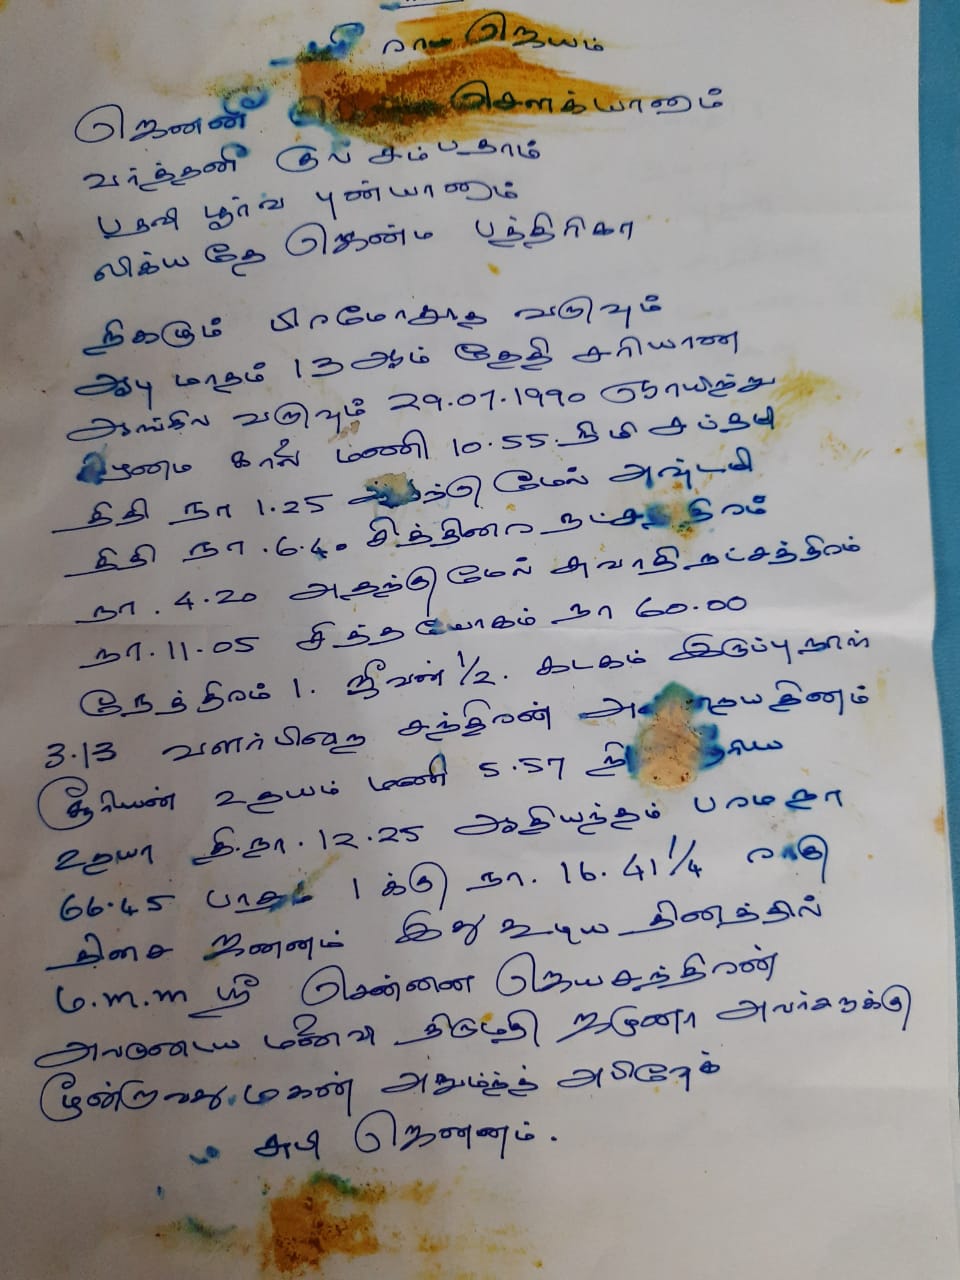 ராம ஜெயம்
ஜெனனீ செளக்யானாம்
வர்த்தனீ குல சம்பதாம்
பதவி பூர்வ புண்யானாம்
லிக்யதே ஜென்ம பத்திரிகா
நிகழும் பிரமோதூத வருஷம்
ஆடி மாதம் 13 ஆம் தேதி சரியான
ஆங்கில வருஷம் 29.07.1990 ஞாயிற்று
கிழமை காலை மணி 10.55 நிமி சப்தமி
திதி நா 1.25 அதற்கு மேல் அஷ்டமி
திதி நா.6.40 சித்திரை நட்சத்திரம்
நா.4.20 அதற்கு மேல் சுவாதி நட்சத்திரம்
நா.11.05 சித்த யோகம் நா 60.00
நேத்திரம் 1. ஜீவன் 1/2. கடகம் இருப்பு நாள்
3.13 வளர்பிறை சந்திரன் தினம்
சூரியன் உதயம் மணி 5.57 நி
உதயா தி.நா.12.25 ஆதியந்தம் பரம நா
66.45 பாதம் 1 க்கு நா. 16.41 1/4 ராகு
திசை ஜனனம் இது கூடிய தினத்தில்
ம.m.m ஸ்ரீ சென்னை ஜெயசந்திரன்
அவருடைய மனைவி திருமதி யமுனா அவர்களுக்கு
மூன்றாவது மகன் அபிஷேக்
சுபி ஜெனனம்.